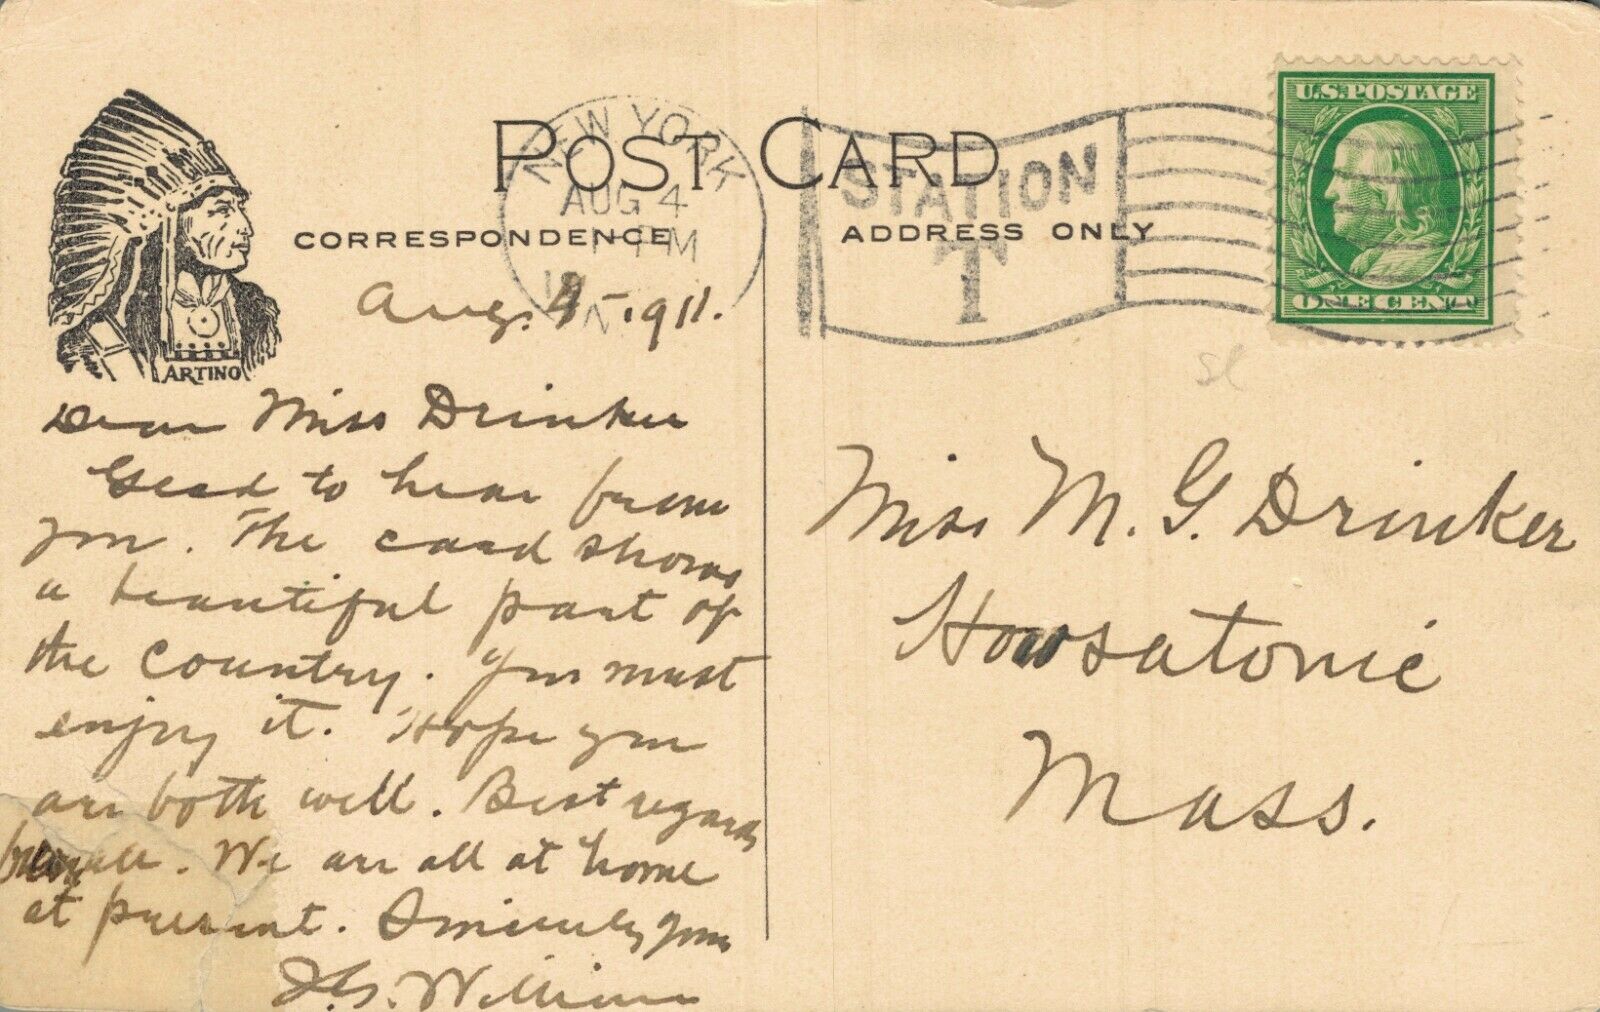 POST CARD
CORRESPONDENCE
ADDRESS ONLY
ARTINO
NEW YORK
AUG 4
PM
STATION
T
U.S. POSTAGE
ONE CENT
Aug. 4-1911.
Dear Miss Drinker
Glad to hear from
you. The card shows
a beautiful part of
the country. You must
enjoy it. Hope you
are both well. Best regards
from all. We are all at home
at present. Sincerely yours
Williams
Miss M. G. Drinker
Howsatonic
Mass.